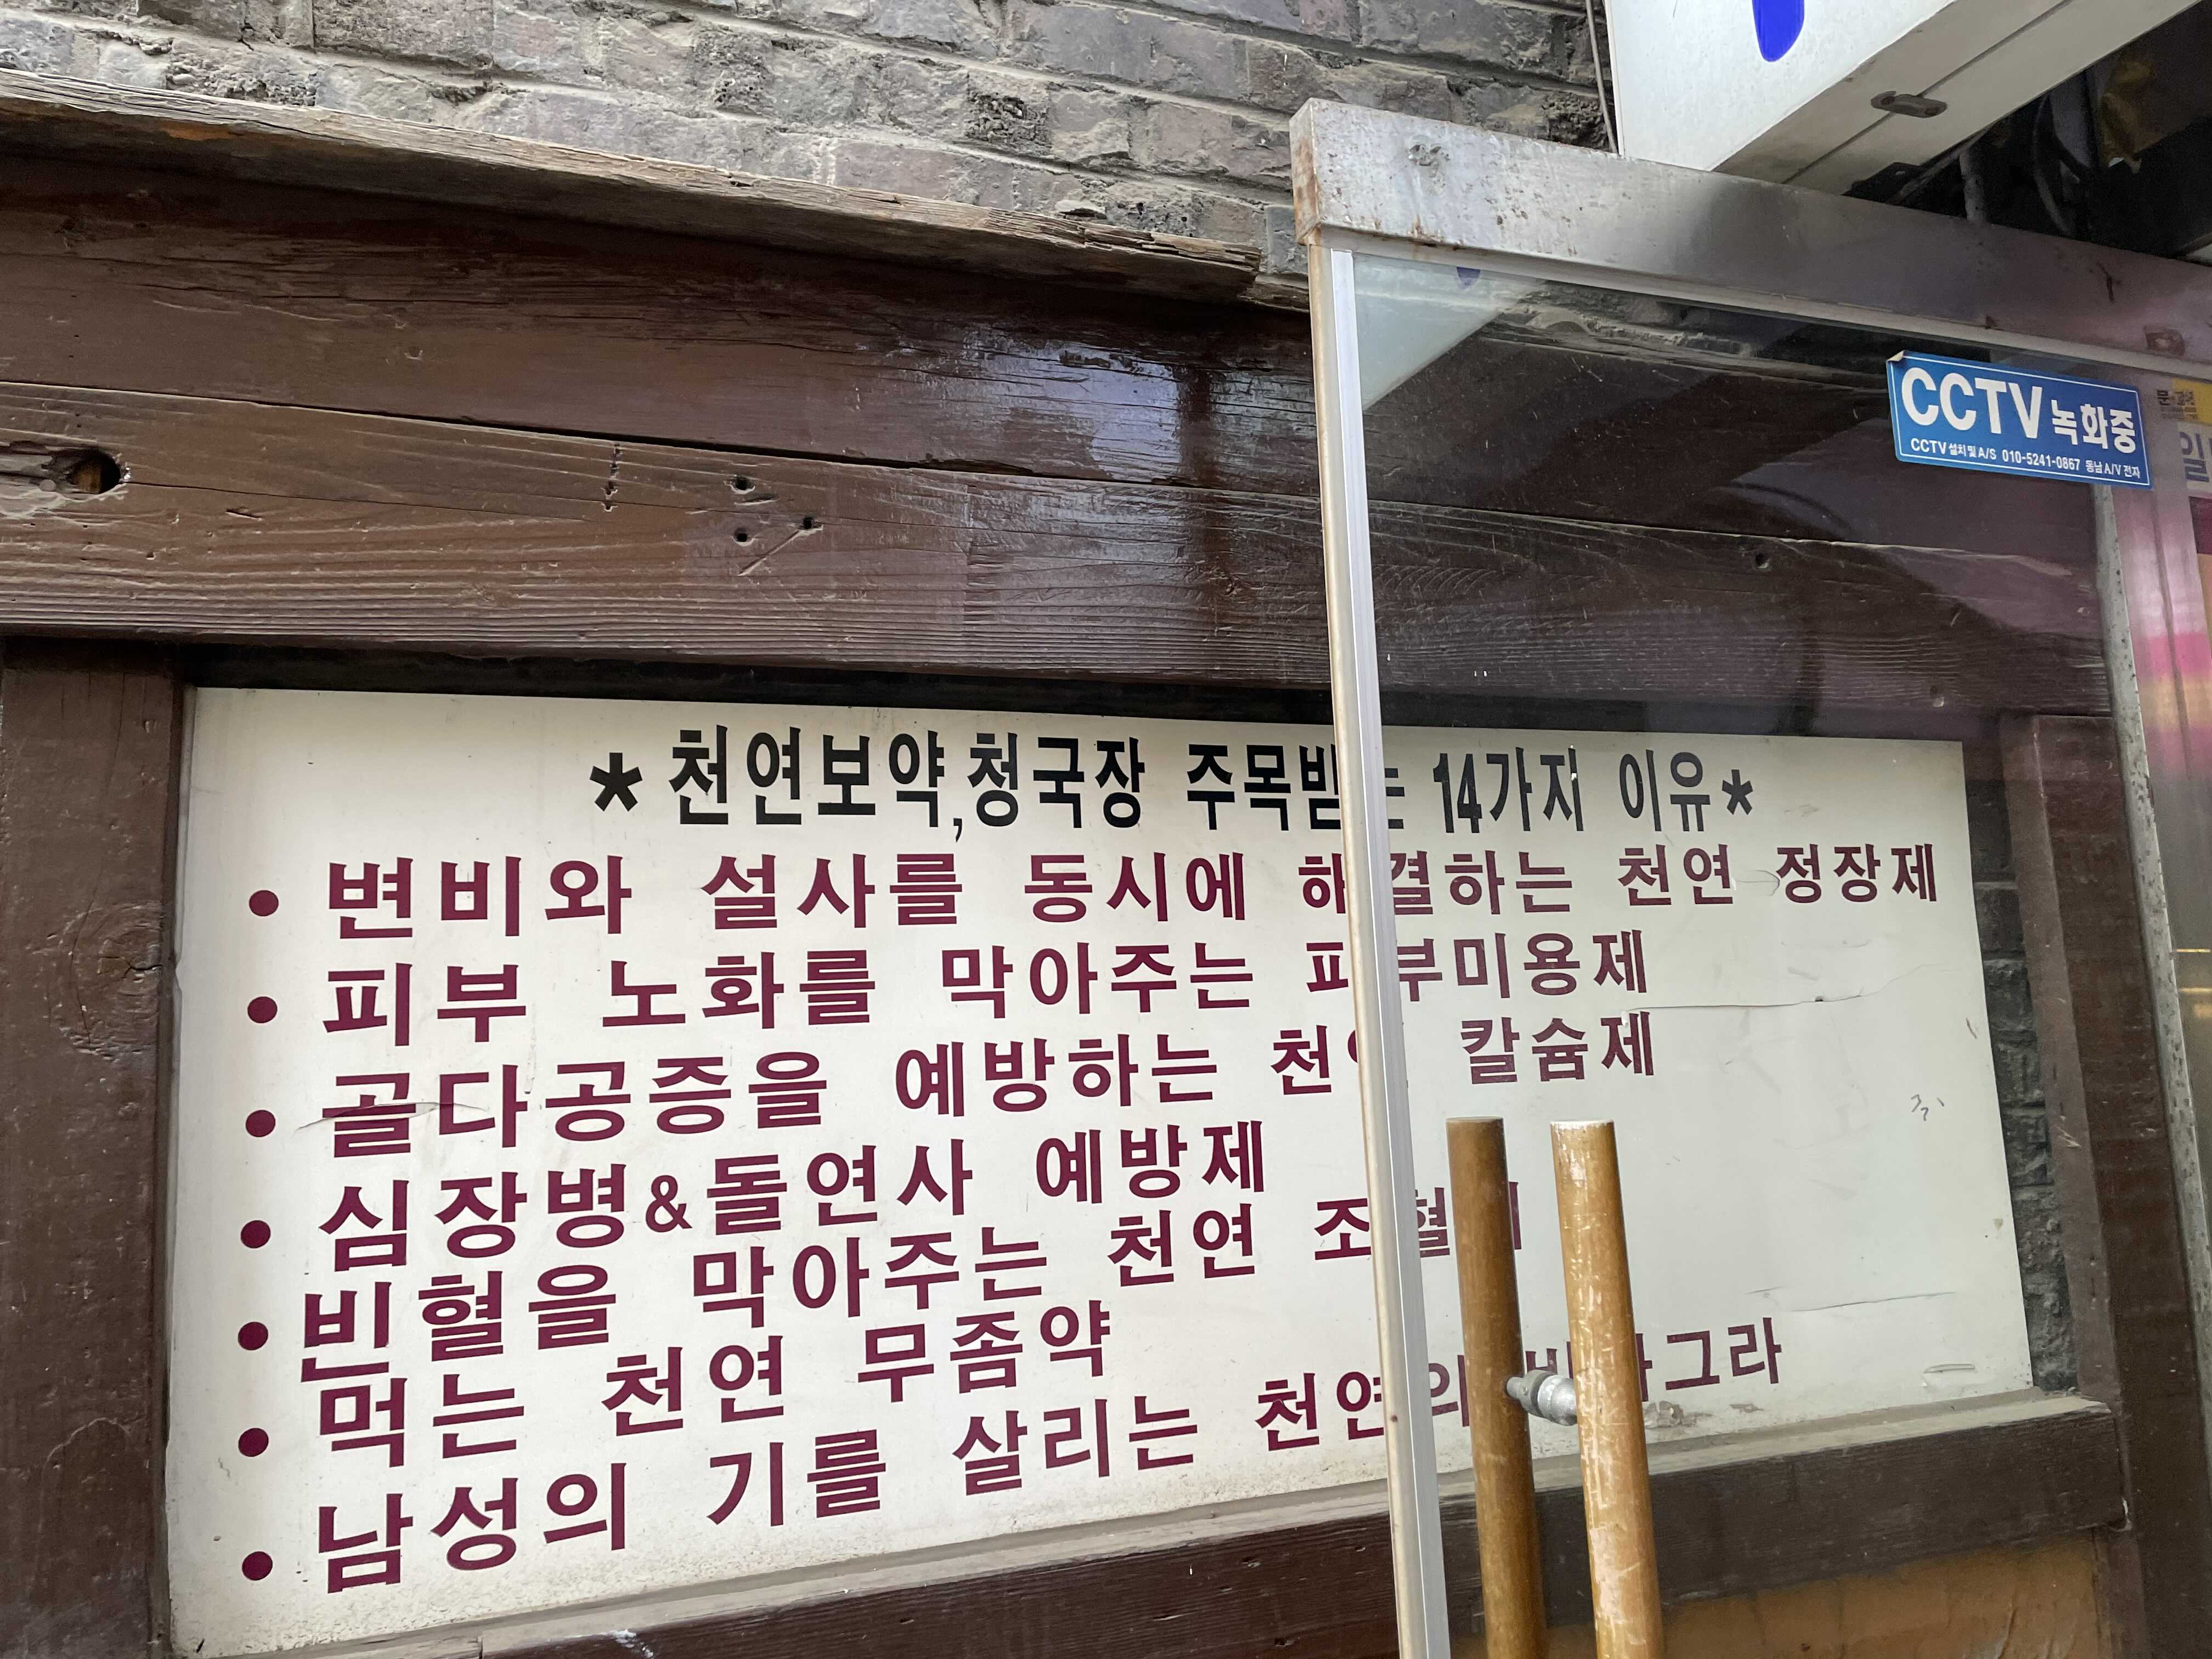 CCTV 녹화중
CCTV 설치 및 A/S 010-5241-0867 동남 A/V 전자
* 천연보약,청국장 주목받는 14가지 이유 *
• 변비와 설사를 동시에 해결하는 천연 정장제
• 피부 노화를 막아주는 피부미용제
• 골다공증을 예방하는 천연 칼슘제
• 심장병&돌연사 예방제
• 빈혈을 막아주는 천연 조혈제
• 먹는 천연 무좀약
• 남성의 기를 살리는 천연의 비아그라